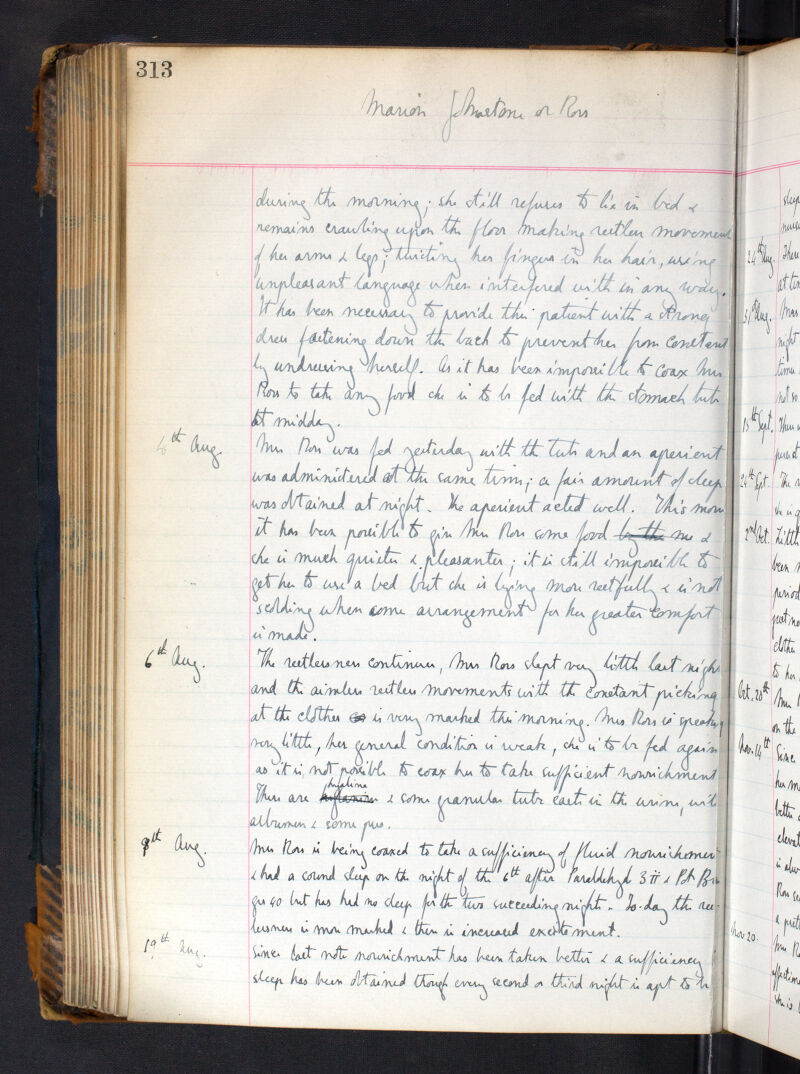 313
Marion Johnstone or Ross
during the morning; she still refuses to lie in bed &
remains crawling upon the floor making restless movement
of her arms & legs; twisting her fingers in her hair, using
unpleasant language when interfered with in any way.
It has been necessary to provide this patient with a strong
dress fastening down the back to prevent her from constant
ly undressing herself. As it has been impossible to coax Mrs
Ross to take any food she is to be fed with the stomach tube
at midday.
4th Aug. Mrs Ross was fed yesterday with the tube and an aperient
was administered at the same time; a fair amount of sleep
was obtained at night. The aperient acted well. This morn
it has been possible to give Mrs Ross some food by the me &
she is much quieter & pleasanter; it is still impossible to
get her to use a bed but she is lying more restfully & is not
scolding when some arrangement for her greater comfort
is made.
6th Aug. The restlessness continues, Mrs Ross slept very little last night
and the aimless restless movements with the constant picking
at the clothes is very marked this morning. Mrs Ross is speaking
very little, her general condition is weak, she is to be fed again
as it is not possible to coax her to take sufficient nourishment
hyaline
There are & some granular tube casts in the urine, with
albumen & some pus.
8th Aug. Mrs Ross is being coaxed to take a sufficiency of fluid nourishment
& had a sound sleep on the night of the 6th after Paraldehyd ʒii & Pot Bro
grs 80 but has had no sleep for the two succeeding nights. To-day the res
lessness is more marked & there is increased excitement.
19th Aug. Since last note nourishment has been taken better & a sufficiency
sleep has been obtained though every second or third night is apt to be
24th Aug.
31st Aug.
15th Sept.
24th Sept.
2nd Oct.
Oct. 28th
Nov. 14th
Nov 20.